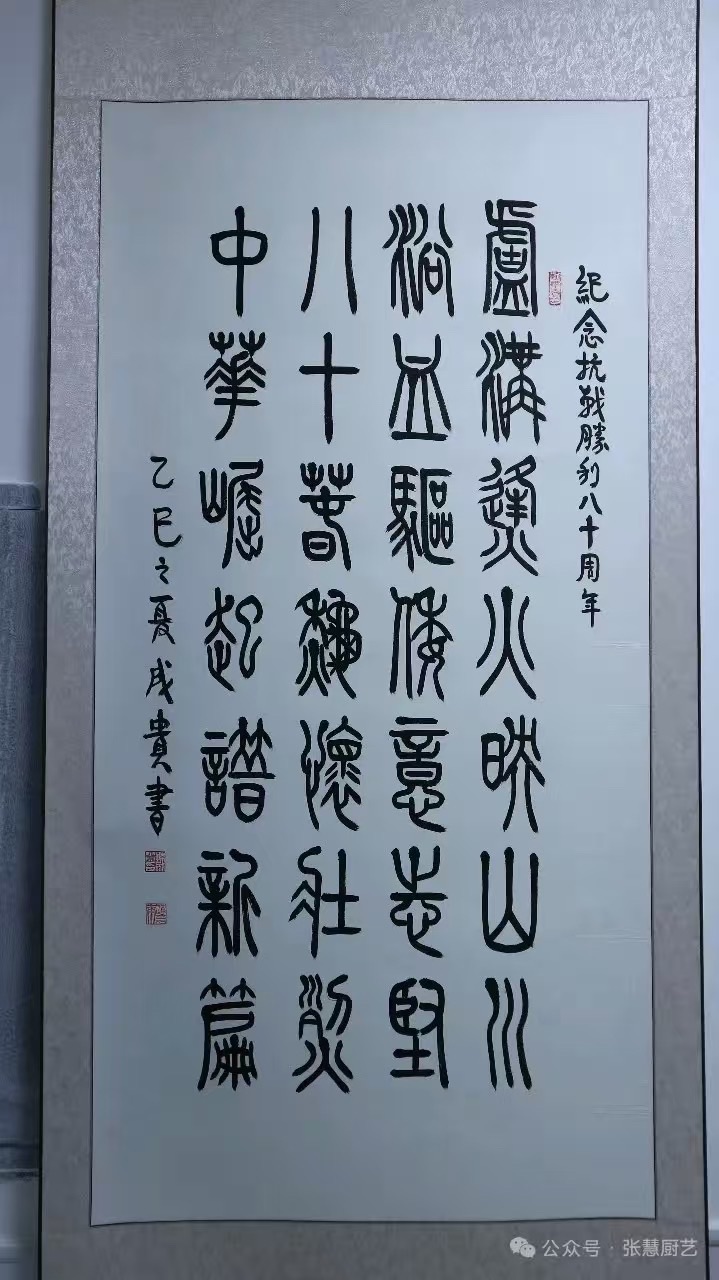 紀念抗戰勝利八十周年
盧溝烽火映山川
浴血驅倭意志堅
八十春秋懷壯烈
中華崛起譜新篇
乙巳之夏成貴書
公众号 · 张慧厨艺